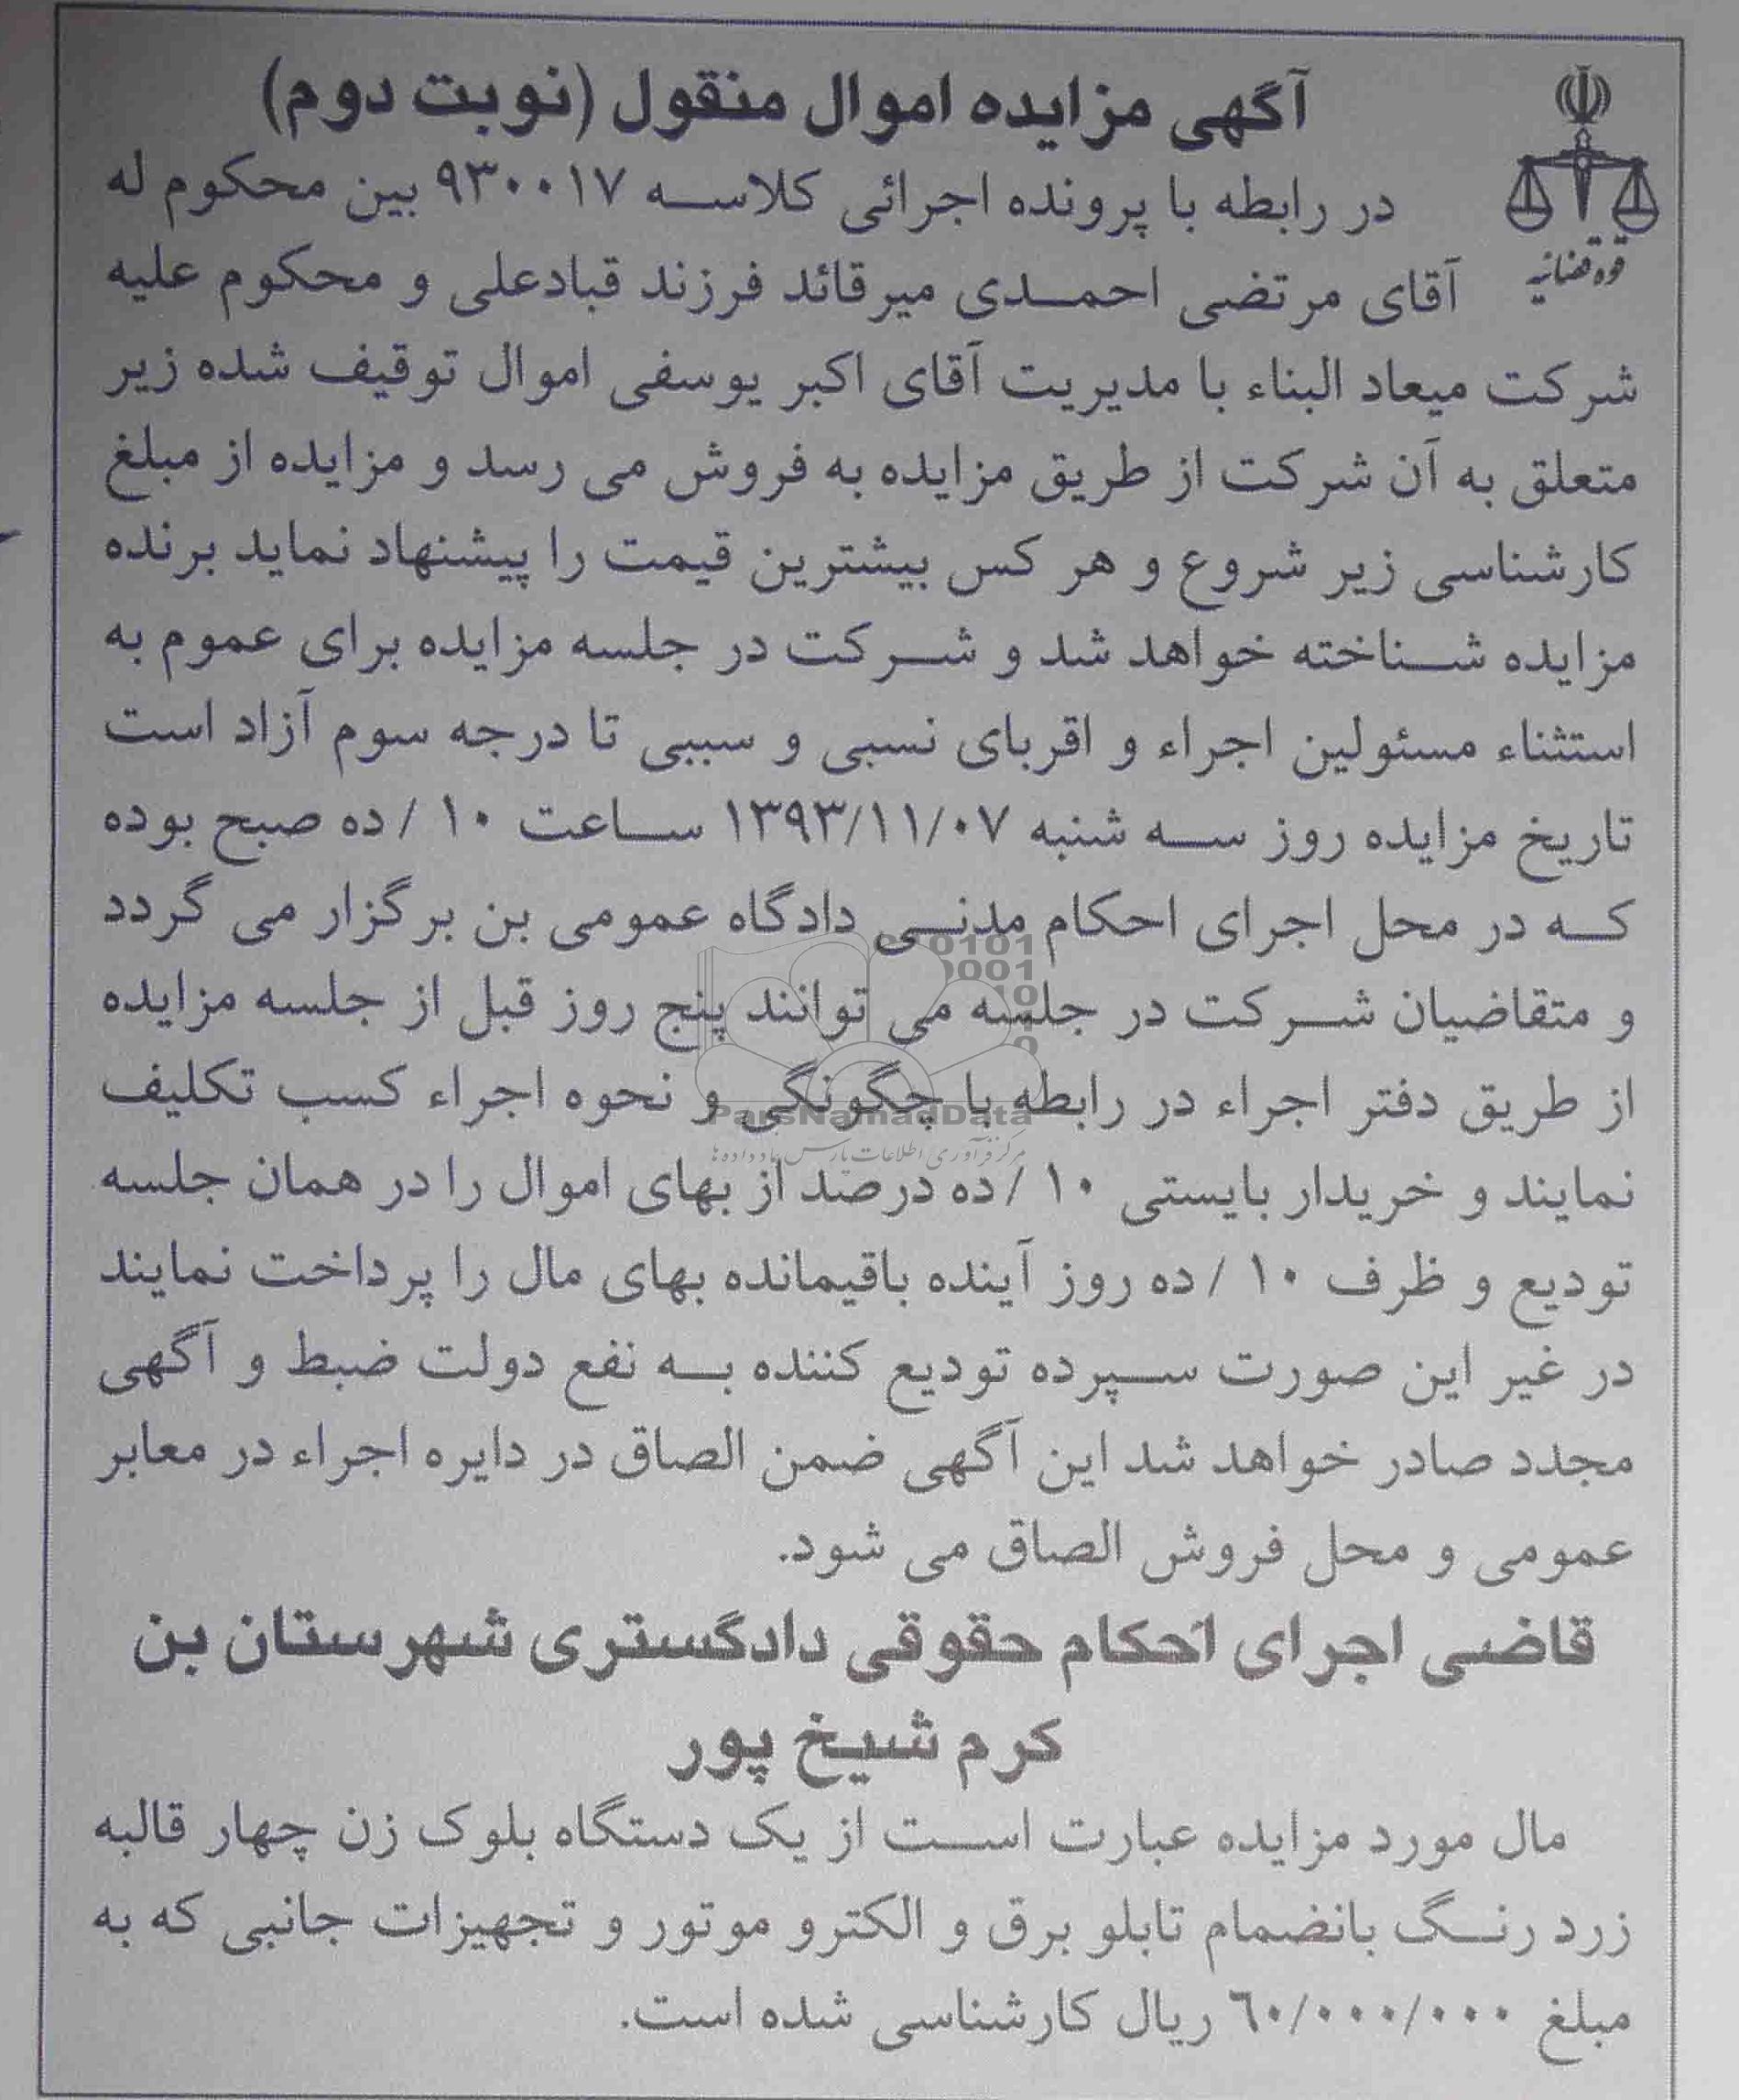 آگهی مزایده اموال منقول (نوبت دوم)
قوه قضائیه
در رابطه با پرونده اجرائی کلاسه ۹۳۰۰۱۷ بین محکوم له
آقای مرتضی احمدی میرقائد فرزند قبادعلی و محکوم علیه
شرکت میعاد البناء با مدیریت آقای اکبر یوسفی اموال توقیف شده زیر
متعلق به آن شرکت از طریق مزایده به فروش می رسد و مزایده از مبلغ
کارشناسی زیر شروع و هر کس بیشترین قیمت را پیشنهاد نماید برنده
مزایده شناخته خواهد شد و شرکت در جلسه مزایده برای عموم به
استثناء مسئولین اجراء و اقربای نسبی و سببی تا درجه سوم آزاد است
تاریخ مزایده روز سه شنبه ۱۳۹۳/۱۱/۰۷ ساعت ۱۰ /ده صبح بوده
که در محل اجرای احکام مدنی دادگاه عمومی بن برگزار می گردد
و متقاضیان شرکت در جلسه می توانند پنج روز قبل از جلسه مزایده
از طریق دفتر اجراء در رابطه با چگونگی و نحوه اجراء کسب تکلیف
ParsNamadData
مرکز فرآوری اطلاعات پارس نماد داده ها
نمایند و خریدار بایستی ۱۰ /ده درصد از بهای اموال را در همان جلسه
تودیع و ظرف ۱۰ /ده روز آینده باقیمانده بهای مال را پرداخت نمایند
در غیر این صورت سپرده تودیع کننده به نفع دولت ضبط و آگهی
مجدد صادر خواهد شد این آگهی ضمن الصاق در دایره اجراء در معابر
عمومی و محل فروش الصاق می شود.
قاضی اجرای احکام حقوقی دادگستری شهرستان بن
کرم شیخ پور
مال مورد مزایده عبارت است از یک دستگاه بلوک زن چهار قالبه
زرد رنگ بانضمام تابلو برق و الکترو موتور و تجهیزات جانبی که به
مبلغ ۶۰/۰۰۰/۰۰۰ ریال کارشناسی شده است.